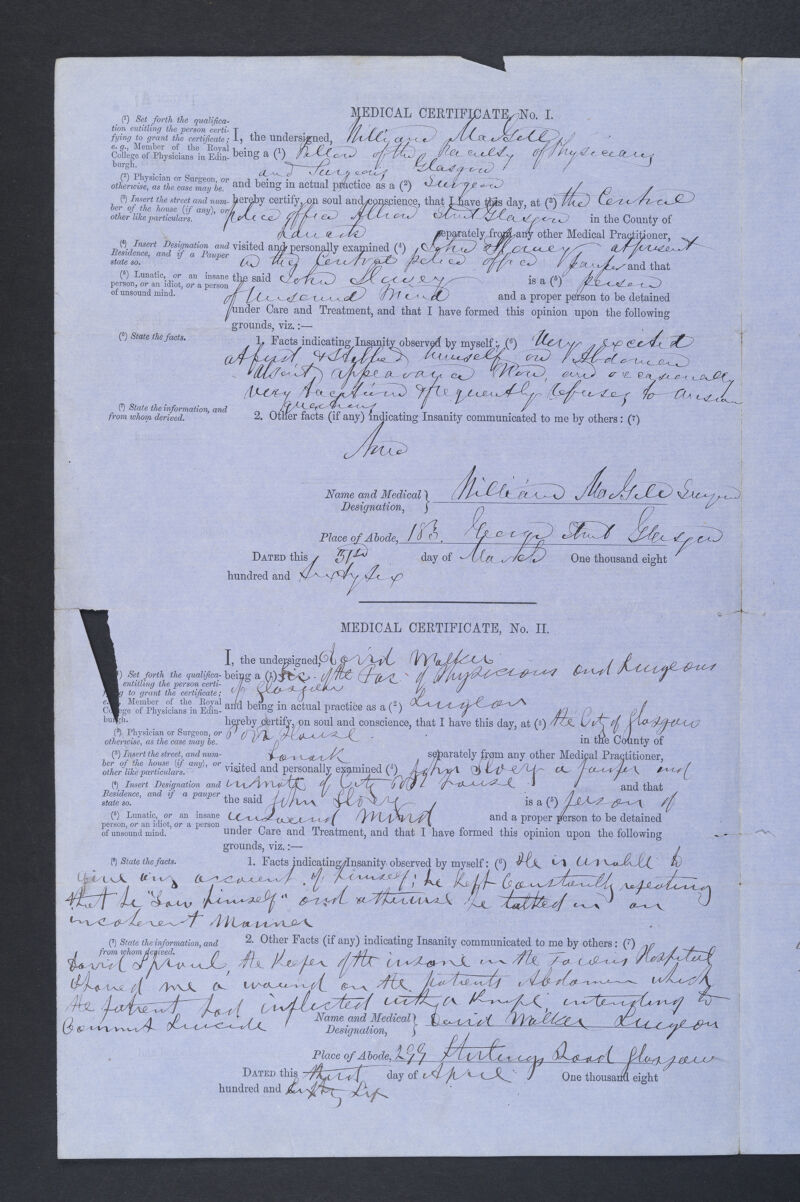 MEDICAL CERTIFICATE, No. I.
(¹) Set forth the qualifica-
tion entitling the person certi-
fying to grant the certificate;
e. g., Member of the Royal
College of Physicians in Edin-
burgh.
(²) Physician or Surgeon, or
otherwise, as the case may be.
(³) Insert the street and num-
ber of the house (if any), or
other like particulars.
(⁴) Insert Designation and
Residence, and if a Pauper
state so.
(⁵) Lunatic, or an insane
person, or an idiot, or a person
of unsound mind.
I, the undersigned, William MacGill
being a (¹) Fellow of the Faculty of Physicians
and Surgeons Glasgow
and being in actual practice as a (²) Surgeon
hereby certify, on soul and conscience, that I have this day, at (³) the Central
police office Albion Street Glasgow in the County of
Lanark separately from any other Medical Practitioner,
visited and personally examined (⁴) John at present
in the Central police office pauper and that
the said John is a (⁵) person
of Unsound Mind and a proper person to be detained
under Care and Treatment, and that I have formed this opinion upon the following
grounds, viz.:—
(⁶) State the facts.
1. Facts indicating Insanity observed by myself: (⁶) Very excited
at first & stabbed himself on Abdomen
appearance Now, and occasionally
very taciturn & frequently refuses to answer
questions
(⁷) State the information, and
from whom derived.
2. Other facts (if any) indicating Insanity communicated to me by others: (⁷)
None
Name and Medical
Designation,
William MacGill Surgeon
Place of Abode, 183. George Street Glasgow
DATED this 31st day of March One thousand eight
hundred and Sixty Six
MEDICAL CERTIFICATE, No. II.
(¹) Set forth the qualifica-
entitling the person certi-
to grant the certificate;
Member of the Royal
College of Physicians in Edin-
burgh.
(²) Physician or Surgeon, or
otherwise, as the case may be.
(³) Insert the street and num-
ber of the house (if any), or
other like particulars.
(⁴) Insert Designation and
Residence, and if a pauper
state so.
(⁵) Lunatic, or an insane
person, or an idiot, or a person
of unsound mind.
I, the undersigned, David Walker
being a (¹) Lic. of the Fac. of Physicians and Surgeons
of Glasgow
and being in actual practice as a (²) Surgeon
hereby certify, on soul and conscience, that I have this day, at (³) the City of Glasgow
Poor House. in the County of
Lanark separately from any other Medical Practitioner,
visited and personally examined (⁴) John a pauper and
inmate of City Poor House and that
the said John is a (⁵) person of
unsound mind and a proper person to be detained
under Care and Treatment, and that I have formed this opinion upon the following
grounds, viz.:—
(⁶) State the facts.
1. Facts indicating Insanity observed by myself: (⁶) He is unable to
give any account of himself; he kept constantly repeating
that he "saw himself" and otherwise he talked in an
incoherent manner
(⁷) State the information, and
from whom derived.
2. Other Facts (if any) indicating Insanity communicated to me by others: (⁷)
David Sproul, the Keeper of the insane in the Towns Hospital
showed me a wound on the patients Abdomen which
the patient had inflicted with a Knife intending to
Commit Suicide
Name and Medical
Designation,
David Walker Surgeon
Place of Abode, 299 Stirlings Road Glasgow
DATED this third day of April One thousand eight
hundred and Sixty Six